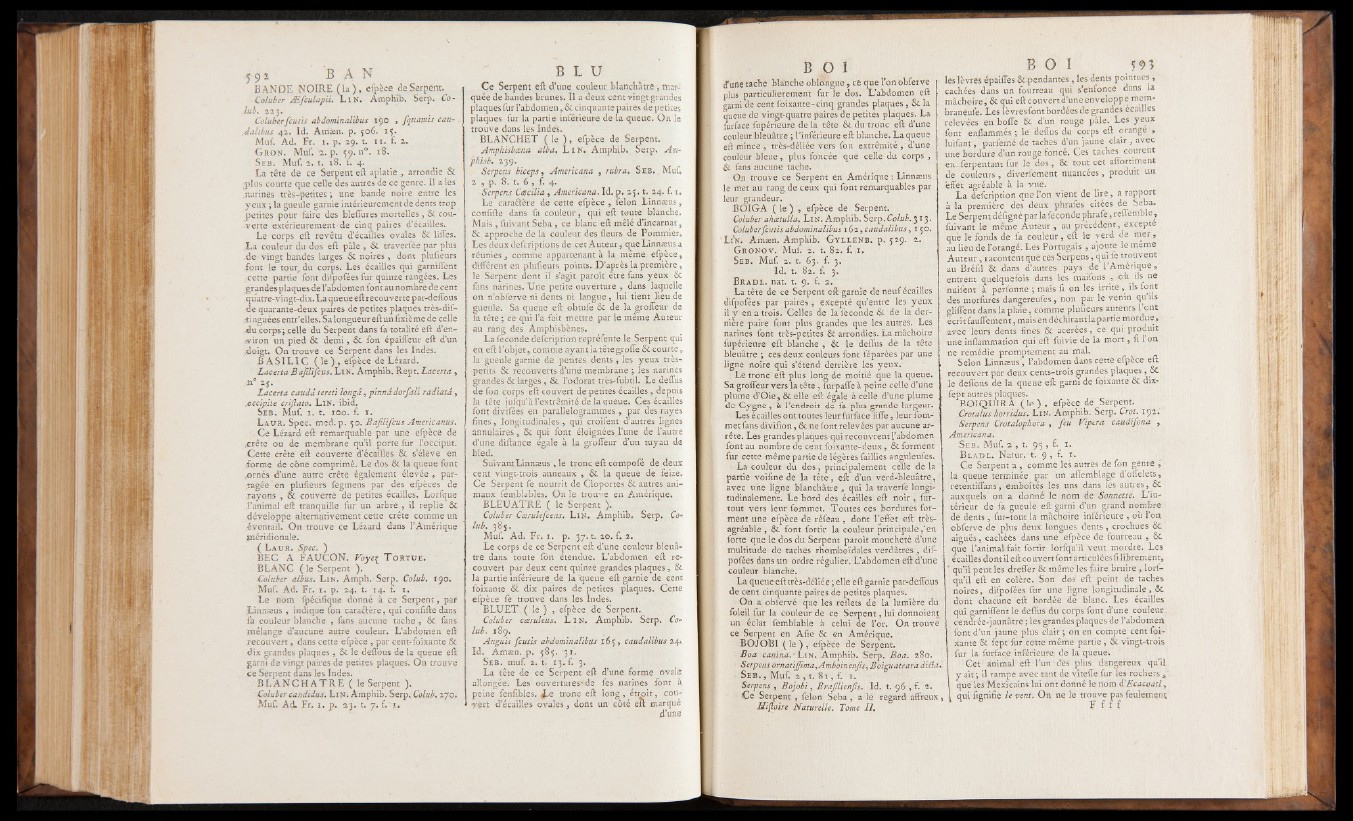 592 BAN
BANDE NOIRE (la), eſpèce de Serpent.
Coluber Æſculapii. LIN. Amphib. Serp. Co-
lub. 223.
Coluber ſcutis abdominalibus 190, ſquamis cau-
dalibus 42. Id. Amæn. p. 506. 15.
Muſ. Ad. Fr. 1. p. 29. t. 11. f. 2.
GRON. Muſ. 2. p. 59. n°. 18.
SEB. Muſ. 2. t. 18. f. 4.
La tête de ce Serpent eſt aplatie, arrondie &
plus courte que celle des autres de ce genre. Il a les
narines très-petites; une bande noire entre les
yeux; la gueule garnie intérieurement de dents trop
petites pour faire des bleſſures mortelles, & cou-
verte extérieurement de cinq paires d'écailles.
Le corps eſt revêtu d'écailles ovales & liſſes.
La couleur du dos eſt pâle, & traverſée par plus
de vingt bandes larges & noires, dont pluſieurs
font le tour du corps. Les écailles qui garniſſent
cette partie ſont diſpoſées ſur quinze rangées. Les
grandes plaques de l'abdomen ſont au nombre de cent
quatre-vingt-dix. La queue eſt recouverte par-deſſous
de quarante-deux paires de petites plaques très-diſ-
tinguées entr'elles. Sa longueur eſt un ſixième de celle
du corps; celle du Serpent dans ſa totalité eſt d'en-
viron un pied & demi, & ſon épaiſſeur eſt d'un
doigt. On trouve ce Serpent dans les Indes.
BASILIC (le), eſpèce de Lézard.
Lacerta Baſiliſcus. LIN. Amphib. Rept. Lacerta,
n° 25.
Lacerta caudâ tereti longâ, pinnâ dorſali radiatâ,
occipite criſtato. LIN. ibid.
SEB. Muſ. 1. t. 100. f. 1.
LAUR. Spec. med. p. 50. Baſiliſcus Americanus.
Ce Lézard eſt remarquable par une eſpèce de
crête ou de membrane qu'il porte ſur l'occiput.
Cette crête eſt couverte d'écailles & s'élève en
forme de cône comprimé. Le dos & la queue ſont
ornés d'une autre crête également élevée, par-
tagée en pluſieurs ſegmens par des eſpèces de
rayons, & couverte de petites écailles. Lorſque
l'animal eſt tranquille ſur un arbre, il replie &
développe alternativement cette crête comme un
éventail. On trouve ce Lézard dans l'Amérique
méridionale.
(LAUR. Spec.)
BEC A FAUCON. Voyez TORTUE.
BLANC (le Serpent).
Coluber albus. LIN. Amph. Serp. Colub. 190.
Muſ. Ad. Fr. 1. p. 24. t. 14. f. 1.
Le nom ſpécifique donné à ce Serpent, par
Linnæus, indique ſon caractère, qui conſiſte dans
ſa couleur blanche, ſans aucune tache, & ſans
mélange d'aucune autre couleur. L'abdomen eſt
recouvert, dans cette eſpèce, par cent-ſoixante &
dix grandes plaques, & le deſſous de la queue eſt
garni de vingt paires de petites plaques. On trouve
ce Serpent dans les Indes.
BLANCHATRE (le Serpent).
Coluber candidus. LIN. Amphib. Serp. Colub. 270.
Muſ. Ad. Fr. 1. p. 23. t. 7. f. 1.
BLU
Ce Serpent eſt d'une couleur blanchâtre, mar-
quée de bandes brunes. Il a deux cent vingt grandes
plaques ſur l'abdomen, & cinquante paires de petites
plaques ſur la partie inférieure de ſa queue. On le
trouve dans les Indes.
BLANCHET (le), eſpèce de Serpent.
Amphisbæna alba. LIN. Amphib. Serp. Am-
phisb. 239.
Serpens biceps, Americana, rubra. SEB. Muſ.
2, p. 8. t. 6, f. 4.
Serpens Cæcilia, Americana. Id. p. 25. t. 24. f. 1.
Le caractère de cette eſpèce, ſelon Linnæus,
conſiſte dans ſa couleur, qui eſt toute blanche.
Mais, ſuivant Seba, ce blanc eſt mêlé d'incarnat,
& approche de la couleur des fleurs de Pommier.
Les deux deſcriptions de cet Auteur, que Linnæus a
réunies, comme appartenant à la même eſpèce,
diffèrent en pluſieurs points. D'après la première,
le Serpent dont il s'agit paroît être ſans yeux &
ſans narines. Une petite ouverture, dans laquelle
on n'obſerve ni dents ni langue, lui tient lieu de
gueule. Sa queue eſt obtuſe & de la groſſeur de
la tête; ce qui l'a fait mettre par le même Auteur
au rang des Amphisbènes.
La ſeconde deſcription repréſente le Serpent qui
en eſt l'objet, comme ayant la tête groſſe & courte,
la gueule garnie de petites dents, les yeux très-
petits & recouverts d'une membrane; les narines
grandes & larges, & l'odorat très-ſubtil. Le deſſus
de ſon corps eſt couvert de petites écailles, depuis
la tête juſqu'à l'extrémité de la queue. Ces écailles
ſont diviſées en parallelogrammes, par des rayes
fines, longitudinales, qui croiſent d'autres lignes
annulaires, & qui ſont éloignées l'une de l'autre
d'une diſtance égale à la groſſeur d'un tuyau de
bled.
Suivant Linnæus, le tronc eſt compoſé de deux
cent vingt-trois anneaux, & la queue de ſeize.
Ce Serpent ſe nourrit de Cloportes & autres ani-
maux ſemblables. On le trouve en Amérique.
BLEUATRE (le Serpent).
Coluber Cæruleſcens. LIN. Amphib. Serp. Co-
lub. 385.
Muſ. Ad. Fr. 1. p. 37. t. 20. f. 2.
Le corps de ce Serpent eſt d'une couleur bleuâ-
tre dans toute ſon étendue. L'abdomen eſt re-
couvert par deux cent quinze grandes plaques, &
la partie inférieure de la queue eſt garnie de cent
ſoixante & dix paires de petites plaques. Cette
eſpèce ſe trouve dans les Indes.
BLUET (le), eſpèce de Serpent.
Coluber cæruleus. LIN. Amphib. Serp. Co-
lub. 189.
Anguis ſcutis abdominalibus 165, caudalibus 24.
Id. Amæn. p. 585. 31.
SEB. muſ. 2. t. 13. f. 3.
La tête de ce Serpent eſt d'une forme ovale
allongée. Les ouvertures de ſes narines ſont à
peine ſenſibles. Le tronc eſt long, étroit, cou-
vert d'écailles ovales, dont un côté eſt marqué
d'une
BOI
d'une tache blanche oblongue, ce que l'on obſerve
plus particulierement ſur le dos. L'abdomen eſt
garni de cent ſoixante-cinq grandes plaques, & la
queue de vingt-quatre paires de petites plaques. La
ſurface ſupérieure de la tête & du tronc eſt d'une
couleur bleuâtre; l'inférieure eſt blanche. La queue
eſt mince, très-déliée vers ſon extrémité, d'une
couleur bleue, plus foncée que celle du corps,
& ſans aucune tache.
On trouve ce Serpent en Amérique: Linnæus
le met au rang de ceux qui ſont remarquables par
leur grandeur.
BOIGA (le), eſpèce de Serpent.
Coluber ahætulla. LIN. Amphib. Serp. Colub. 313.
Coluber ſcutis abdominalibus 162, caudalibus, 150.
LIN. Amæn. Amphib. GYLLENB. p. 529. 2.
GRONOV. Muſ. 2. t. 82. f. 1.
SEB. Muſ. 2. t. 63. f. 3.
Id. t. 82. f. 3.
BRADL. nat. t. 9. f. 2.
La tête de ce Serpent eſt garnie de neuf écailles
diſpoſées par paires, excepté qu'entre les yeux
il y en a trois. Celles de la ſeconde & de la der-
nière paire ſont plus grandes que les autres. Les
narines ſont très-petites & arrondies. La mâchoire
ſupérieure eſt blanche, & le deſſus de la tête
bleuâtre; ces deux couleurs ſont ſéparées par une
ligne noire qui s'étend derrière les yeux.
Le tronc eſt plus long de moitié que la queue.
Sa groſſeur vers la tête, ſurpaſſe à peine celle d'une
plume d'Oie, & elle eſt égale à celle d'une plume
de Cygne, à l'endroit de ſa plus grande largeur.
Les écailles ont toutes leur ſurface liſſe, leur ſom-
met ſans diviſion, & ne ſont relevées par aucune ar-
rête. Les grandes plaques qui recouvrent l'abdomen
ſont au nombre de cent ſoixante-deux, & forment
ſur cette même partie de légères ſaillies anguleuſes.
La couleur du dos, principalement celle de la
partie voiſine de la tête, eſt d'un verd-bleuâtre,
avec une ligne blanchâtre, qui la traverſe longi-
tudinalement. Le bord des écailles eſt noir, ſur-
tout vers leur ſommet. Toutes ces bordures for-
ment une eſpèce de réſeau, dont l'effet eſt très-
agréable, & font ſortir la couleur principale, en
ſorte que le dos du Serpent paroît moucheté d'une
multitude de taches rhomboïdales verdâtres, diſ-
poſées dans un ordre régulier. L'abdomen eſt d'une
couleur blanche.
La queue eſt très-déliée; elle eſt garnie par-deſſous
de cent cinquante paires de petites plaques.
On a obſervé que les reflets de la lumière du
ſoleil ſur la couleur de ce Serpent, lui donnoient
un éclat ſemblable à celui de l'or. On trouve
ce Serpent en Aſie & en Amérique.
BOJOBI (le), eſpèce de Serpent.
Boa canina. LIN. Amphib. Serp. Boa. 280.
Serpens ornatiſſima, Amboinenſis, Boiguateara dicta.
SEB., Muſ. 2, t. 81, f. 1.
Serpens, Bojobi, Braſilienſis. Id. t. 96, f. 2.
Ce Serpent, ſelon Seba, a le regard affreux,
Hiſtoire Naturelle. Tome II.
BOI 593
les lèvres épaiſſes & pendantes, les dents pointues,
cachées dans un fourreau qui s'enfonce dans la
mâchoire, & qui eſt couvert d'une enveloppe mem-
braneuſe. Les lèvres ſont bordées de grandes écailles
relevées en boſſe & d'un rouge pâle. Les yeux
ſont enflammés; le deſſus du corps eſt orangé,
luiſant, parſemé de taches d'un jaune clair, avec
une bordure d'un rouge foncé. Ces taches courent
en ſerpentant ſur le dos, & tout cet aſſortiment
de couleurs, diverſement nuancées, produit un
effet agréable à la vue.
La deſcription que l'on vient de lire, a rapport
à la première des deux phraſes citées de Seba.
Le Serpent déſigné par la ſeconde phraſe, reſſemble,
ſuivant le même Auteur, au précédent, excepté
que le fonds de ſa couleur, eſt le verd de mer,
au lieu de l'orangé. Les Portugais, ajoute le même
Auteur, racontent que ces Serpens, qui ſe trouvent
au Bréſil & dans d'autres pays de l'Amérique,
entrent quelquefois dans les maiſons, où ils ne
nuiſent à perſonne; mais ſi on les irrite, ils font
des morſures dangereuſes, non par le venin qu'ils
gliſſent dans la plaie, comme pluſieurs auteurs l'ont
écrit fauſſement, mais en déchirant la partie mordue,
avec leurs dents fines & acérées, ce qui produit
une inflammation qui eſt ſuivie de la mort, ſi l'on
ne remédie promptement au mal.
Selon Linnæus, l'abdomen dans cette eſpèce eſt
recouvert par deux cents-trois grandes plaques, &
le deſſous de la queue eſt garni de ſoixante & dix-
ſept autres plaques.
BOIQUIRA (le), eſpèce de Serpent.
Crotalus horridus. LIN. Amphib. Serp. Crot. 192.
Serpens Crotalophora, ſeu Vipera caudiſona,
Americana.
SEB. Muſ. 2, t. 95, f. 1.
BLADL. Natur. t. 9, f. 1.
Ce Serpent a, comme les autres de ſon genre,
la queue terminée par un aſſemblage d'oſſelets,
retentiſſans, emboîtés les uns dans les autres, &
auxquels on a donné le nom de Sonnette. L'in-
térieur de ſa gueule eſt garni d'un grand nombre
de dents, ſur-tout la mâchoire inférieure, où l'on
obſerve de plus deux longues dents, crochues &
aiguës, cachées dans une eſpèce de fourreau, &
que l'animal fait ſortir lorſqu'il veut mordre. Les
écailles dont il eſt couvert ſont articulées ſi librement,
qu'il peut les dreſſer & même les faire bruire, lorſ-
qu'il eſt en colère. Son dos eſt peint de taches
noires, diſpoſées ſur une ligne longitudinale, &
dont chacune eſt bordée de blanc. Les écailles
qui garniſſent le deſſus du corps ſont d'une couleur
cendrée-jaunâtre; les grandes plaques de l'abdomen
ſont d'un jaune plus clair; on en compte cent ſoi-
xante & ſept ſur cette même partie, & vingt-trois
ſur la ſurface inférieure de la queue.
Cet animal eſt l'un des plus dangereux qu'il
y ait; il rampe avec tant de viteſſe ſur les rochers,
que les Mexicains lui ont donné le nom d'Ecacoatl,
qui ſignifie le vent. On ne le trouve pas ſeulement
F f f f